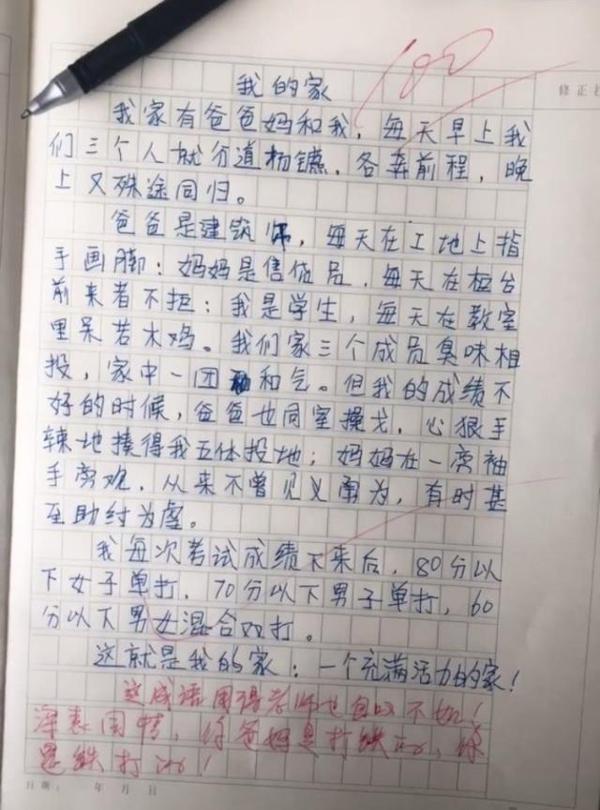 我的家
100
修正
我家有爸爸妈和我，每天早上我
们三个人就分道扬镳，各奔前程，晚
上又殊途同归。
爸爸是建筑师，每天在工地上指
手画脚；妈妈是售货员，每天在柜台
前来者不拒；我是学生，每天在教室
里呆若木鸡。我们家三个成员臭味相
投，家中一团和气。但我的成绩不
好的时候，爸爸也同室操戈，心狠手
辣地揍得我五体投地；妈妈在一旁袖
手旁观，从来不曾见义勇为，有时甚
至助纣为虐。
我每次考试成绩下来后，80分以
下女子单打，70分以下男子单打，60
分以下男女混合双打。
这就是我的家：一个充满活力的家！
这成语用得老师也自叹不如！
深表同情，你爸妈是打铁的，你
是铁打的！
日期：　年　月　日